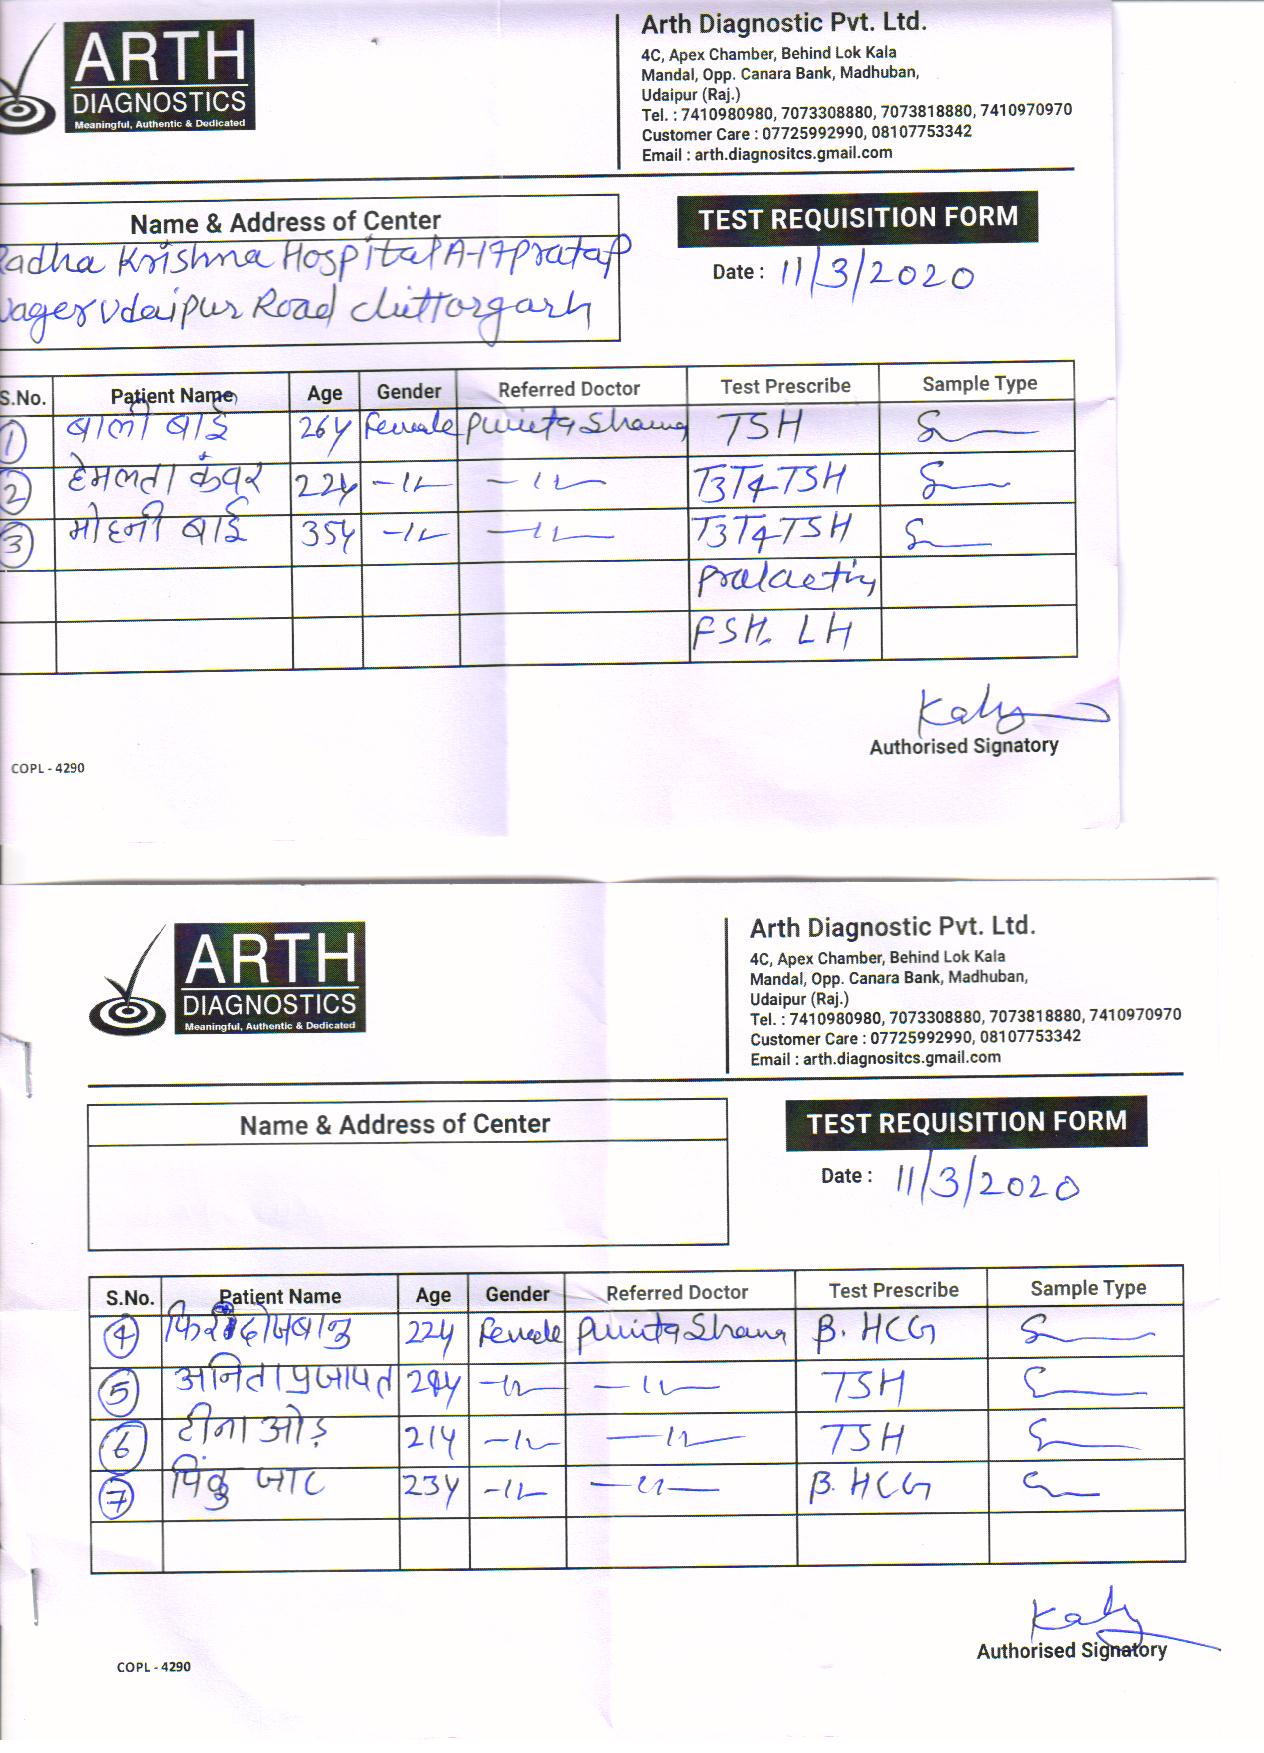 ARTH
DIAGNOSTICS
Meaningful, Authentic & Dedicated
Arth Diagnostic Pvt. Ltd.
4C, Apex Chamber, Behind Lok Kala
Mandal, Opp. Canara Bank, Madhuban,
Udaipur (Raj.)
Tel. : 7410980980, 7073308880, 7073818880, 7410970970
Customer Care : 07725992990, 08107753342
Email : arth.diagnositcs.gmail.com
Name & Address of Center
Radha Krishna Hospital A-17 Pratap
Nager Udaipur Road Chittorgarh
TEST REQUISITION FORM
Date : 11/3/2020
S.No. Patient Name Age Gender Referred Doctor Test Prescribe Sample Type
1 बाली बाई 26y Female TSH
2 हेमलता कंवर 22y -11- -11- T3T4TSH
3 मोहनी बाई 35y -11- -11- T3T4TSH
Prolactin
FSH, LH
Authorised Signatory
COPL - 4290
ARTH
DIAGNOSTICS
Meaningful, Authentic & Dedicated
Arth Diagnostic Pvt. Ltd.
4C, Apex Chamber, Behind Lok Kala
Mandal, Opp. Canara Bank, Madhuban,
Udaipur (Raj.)
Tel. : 7410980980, 7073308880, 7073818880, 7410970970
Customer Care : 07725992990, 08107753342
Email : arth.diagnositcs.gmail.com
Name & Address of Center
TEST REQUISITION FORM
Date : 11/3/2020
S.No. Patient Name Age Gender Referred Doctor Test Prescribe Sample Type
4 22y Female β. HCG
5 अनिता प्रजापत -11- -11- TSH
6 टीना ओड़ 21y -11- -11- TSH
7 पिंकु जाट 23y -11- -11- β. HCG
Authorised Signatory
COPL - 4290